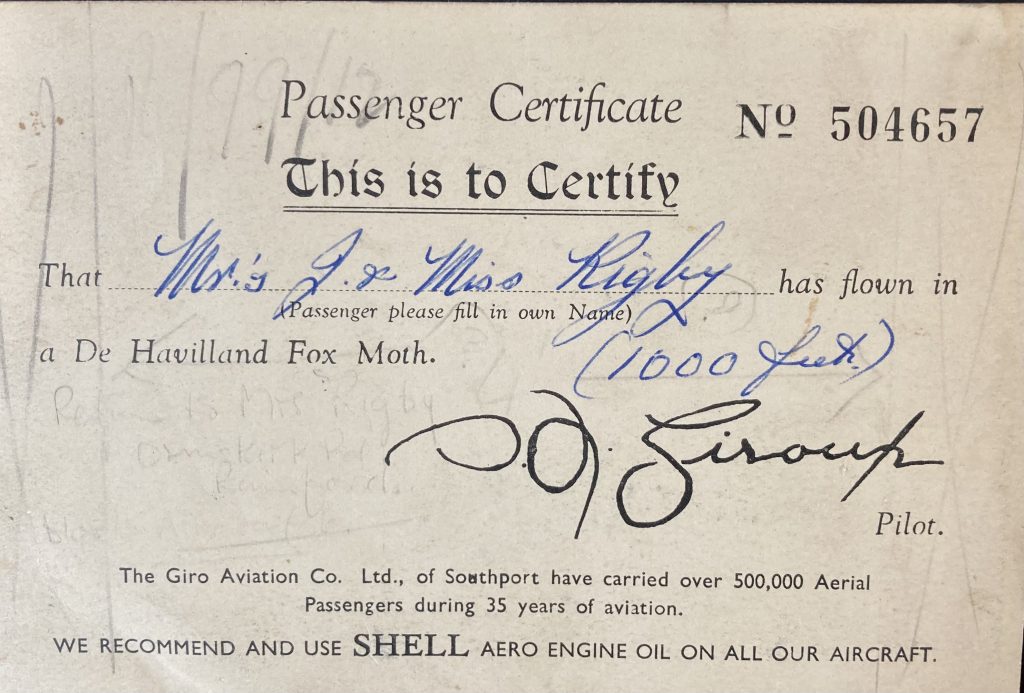 Passenger Certificate
Nº 504657
This is to Certify
That Mr.'s J. & Miss Rigby has flown in
(Passenger please fill in own Name)
a De Havilland Fox Moth. (1000 feet.)
Mrs Rigby
Ormskirk Rd
Rainford.
Giroup
Pilot.
The Giro Aviation Co. Ltd., of Southport have carried over 500,000 Aerial
Passengers during 35 years of aviation.
WE RECOMMEND AND USE SHELL AERO ENGINE OIL ON ALL OUR AIRCRAFT.